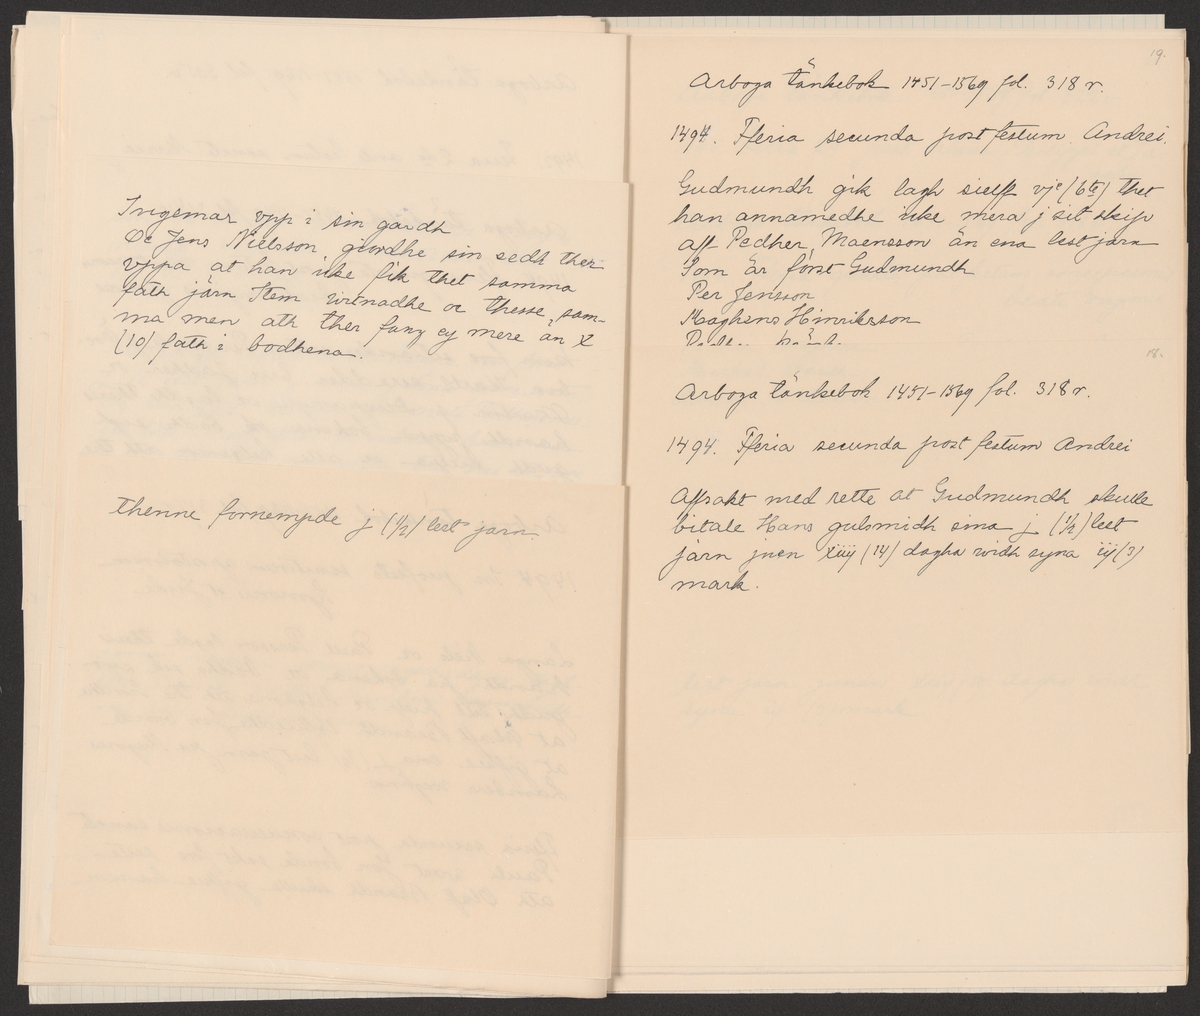 Ingemar vpp i sin gardh
Oc Jens Nielsson giordhe sin eedh ther
vppa at han ikke fik thet samma
fath järn Item witnadhe oc thesse, sam-
ma men ath ther fanz ey mere än X
(10) fath i bodhena.
thenne fornempde j (1/2) lest jarn.
19.
Arboga tänkebok 1451-1569 fol. 318 r.
1494. Fferia secunda post festum Andrei.
Gudmundh gik lagh sielff vjte (6te) thet
han annamedhe ikke mera j sit skip
aff Pedher Maensson än ena lest jarn
Som är först Gudmundh
Per Jensson
Maghens Hinriksson
18.
Arboga tänkebok 1451-1569 fol. 318 r.
1494. Fferia secunda post festum Andrei
Affsakt med rette at Gudmundh skulle
bitale Hans gulsmidh sina j (1/2) lest
järn jnen xiiij (14) dagha widh syna iij (3)
mark.